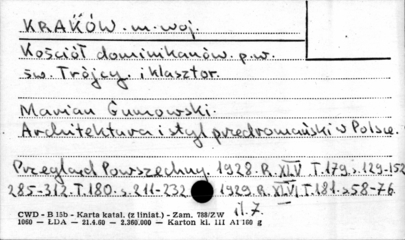 KRAKÓW. m. woj.
Kościół dominikanów. p.w.
św. Trójcy. i klasztor.
Marian Gumowski.
Architektura i styl przedromański w Polsce.
Przegląd Powszechny. 1928. R. XLV. T. 179. s. 129-152
285-312. T. 180. s. 211-232. 1929. R. XLVI. T. 181. s 58-76.
il. 7.
CWD - B 15b - Karta katal. (z liniat.) - Zam. 788/ZW
1060 — ŁDA — 21.4.60 — 2.360.000 — Karton kl. III A1 160 g